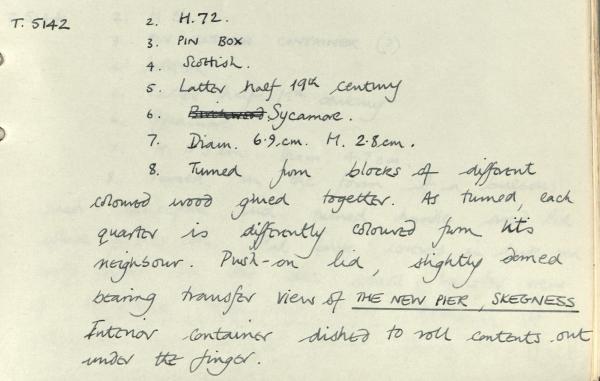 T. 5142 2. H.72.
3. PIN BOX
4. Scottish.
5. Latter half 19th century
6. Birchwood Sycamore.
7. Diam. 6.9.cm. H. 2.8cm.
8. Turned from blocks of different
coloured wood glued together. As turned, each
quarter is differently coloured from its
neighbour. Push-on lid, slightly domed
bearing transfer view of THE NEW PIER, SKEGNESS
Interior container dished to roll contents out
under the finger.